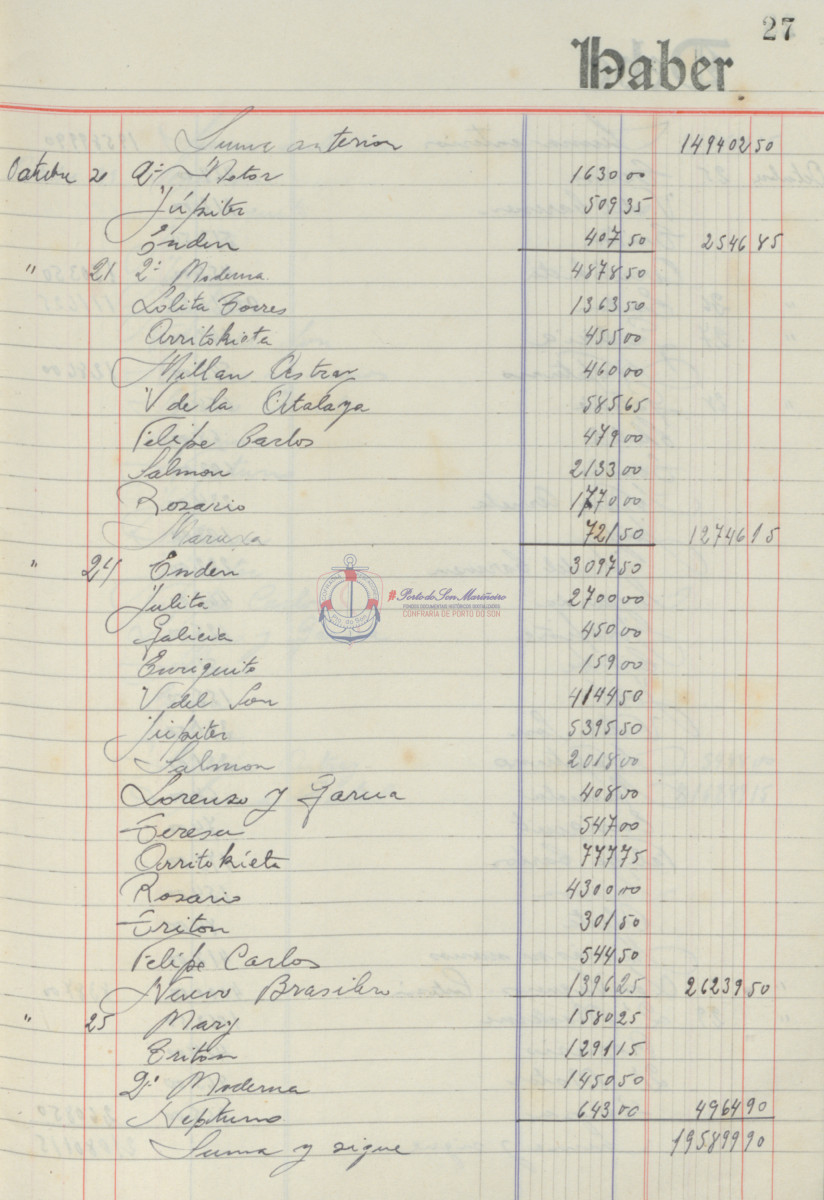 27
Haber
Suma anterior 149402 50
Octubre 20 2º Motor 1630 00
Júpiter 509 35
Enden 407 50 2546 85
" 21 2ª Moderna 4878 50
Lolita Torres 1363 50
Arritokieta 455 00
Millan Astray 460 00
V de la Atalaya 585 65
Felipe Carlos 479 00
Salmon 2133 00
Rosario 1770 00
Maruxa 721 50 12746 15
" 24 Enden 3097 50
Julita 2700 00
Galicia 450 00
Enriquito 159 00
V del Son 4144 50
Júpiter 5395 50
Salmon 2018 00
Lorenzo y Garcia 408 00
Teresa 547 00
Arritokieta 777 75
Rosario 4300 00
Triton 301 50
Felipe Carlos 544 50
Nuevo Brasilero 1396 25 26239 50
" 25 Mary 1580 25
Triton 1291 15
2ª Moderna 1450 50
Neptuno 643 00 4964 90
Suma y sigue 195899 90
Porto do Son Mariñeiro
FONDOS DOCUMENTAIS HISTÓRICOS DIXITALIZADOS
CONFRARIA DE PORTO DO SON